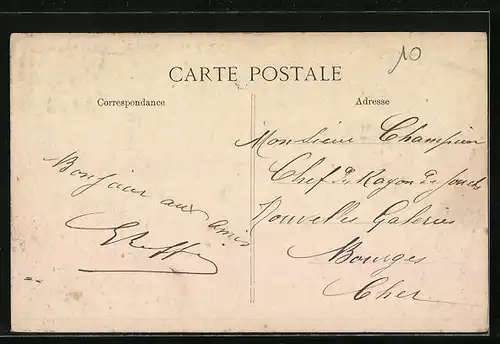 10
CARTE POSTALE
Correspondance
Adresse
Bonjour aux amis
Monsieur Champion
Chef du Rayon de
Nouvelles Galeries
Bourges
Cher